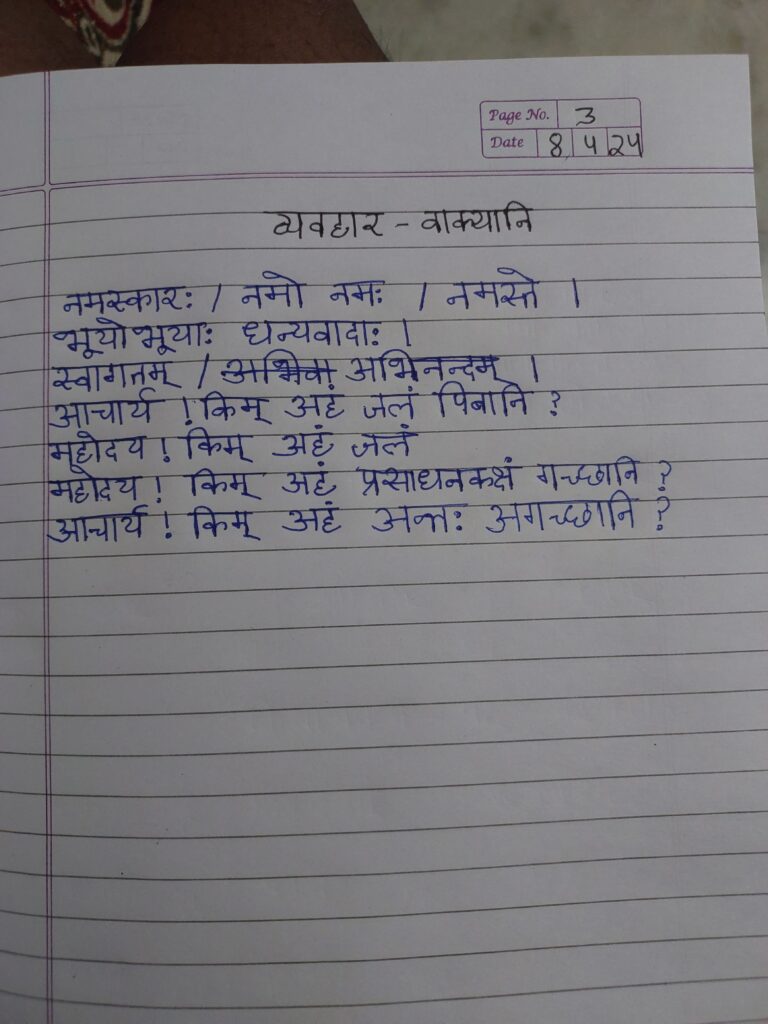 Page No. 3
Date 8 4 24
व्यवहार - वाक्यानि
नमस्कारः / नमो नमः / नमस्ते ।
भूयोभूयाः धन्यवादाः ।
स्वागतम् / अभिनन्दम् ।
आचार्य ! किम् अहं जलं पिबानि ?
महोदय ! किम् अहं जलं
महोदय ! किम् अहं प्रसाधनकक्षं गच्छानि ?
आचार्य ! किम् अहं अन्तः अगच्छानि ?